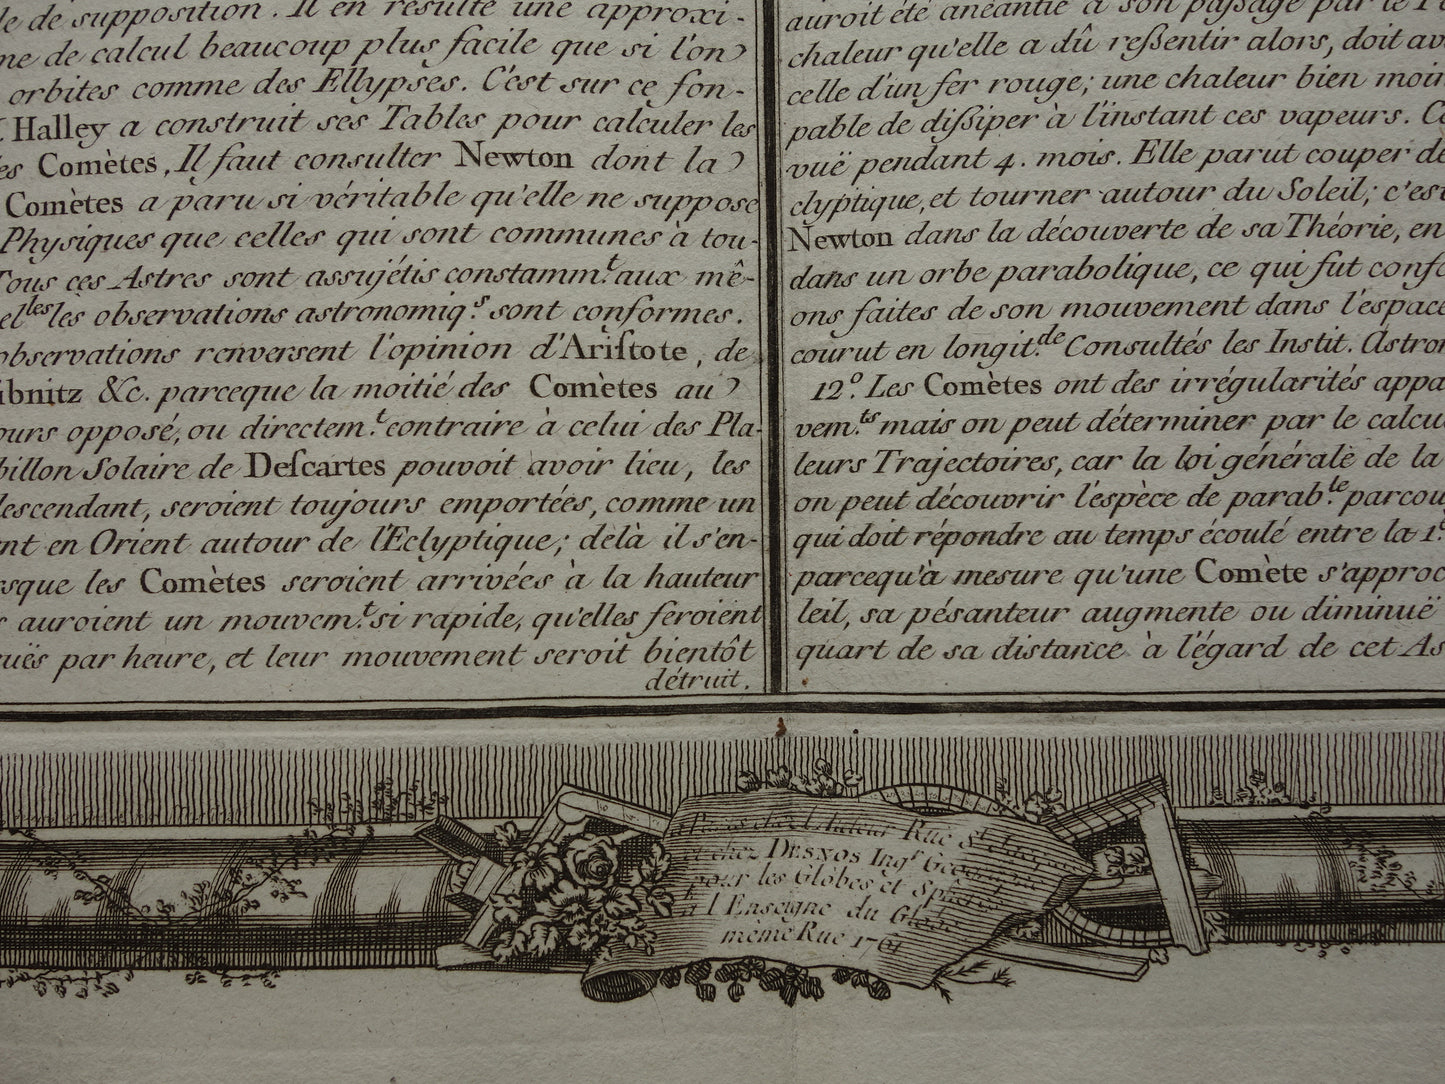 le de supposition. Il en résulte une approxi-
me de calcul beaucoup plus facile que si l'on
orbites comme des Ellypses. C'est sur ce fon-
Halley a construit ses Tables pour calculer les
es Comètes, Il faut consulter Newton dont la
Comètes a paru si véritable qu'elle ne suppose
Physiques que celles qui sont communes à tou-
Tous ces Astres sont assujétis constamm.t aux mê-
el les lès observations astronomiq.s sont conformes.
observations renversent l'opinion d'Ariſtote, de
ibnitz &c. parceque la moitié des Comètes au
ours opposé, ou directem.t contraire à celui des Pla-
billon Solaire de Deſcartes pouvoit avoir lieu, les
descendant, seroient toujours emportées, comme un
nt en Orient autour de l'Eclyptique; delà il s'en-
rsque les Comètes seroient arrivées à la hauteur
s auroient un mouvem.t si rapide, qu'elles feroient
euës par heure, et leur mouvement seroit bientôt
détruit.
auroit été anéantie à son passage par le
chaleur qu'elle a dû reßentir alors, doit av
celle d'un fer rouge; une chaleur bien moin
pable de dißiper à l'instant ces vapeurs. Ce
vuë pendant 4. mois. Elle parut couper de
clyptique, et tourner autour du Soleil; c'est
Newton dans la découverte de sa Théorie, en
dans un orbe parabolique, ce qui fut confo
ons faites de son mouvement dans l'espace
courut en longit.de Consultés les Instit. Astron
12.o Les Comètes ont des irrégularités appa
vem.ts mais on peut déterminer par le calcu
leurs Trajectoires, car la loi générale de la
on peut découvrir l'espèce de parab.le parcou
qui doit répondre au temps écoulé entre la 1.
parcequ'à mesure qu'une Comète s'approc
leil, sa pésanteur augmente ou diminuë
quart de sa distance à l'égard de cet As
A Paris chez l'Auteur Rue St.
et chez DESNOS Ing.r Géog
pour les Globes et Sphères
à l'Enseigne du Globe
même Rue 1761